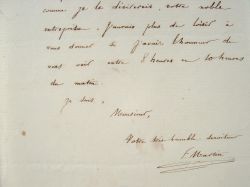 comme je le désirerois, votre noble
entreprise. J'aurais plus de loisir à
vous donner si j'avois l'honneur de
vous voir entre 8 heures et 10 heures
du matin.
je suis,
Monsieur,
Votre très humble serviteur